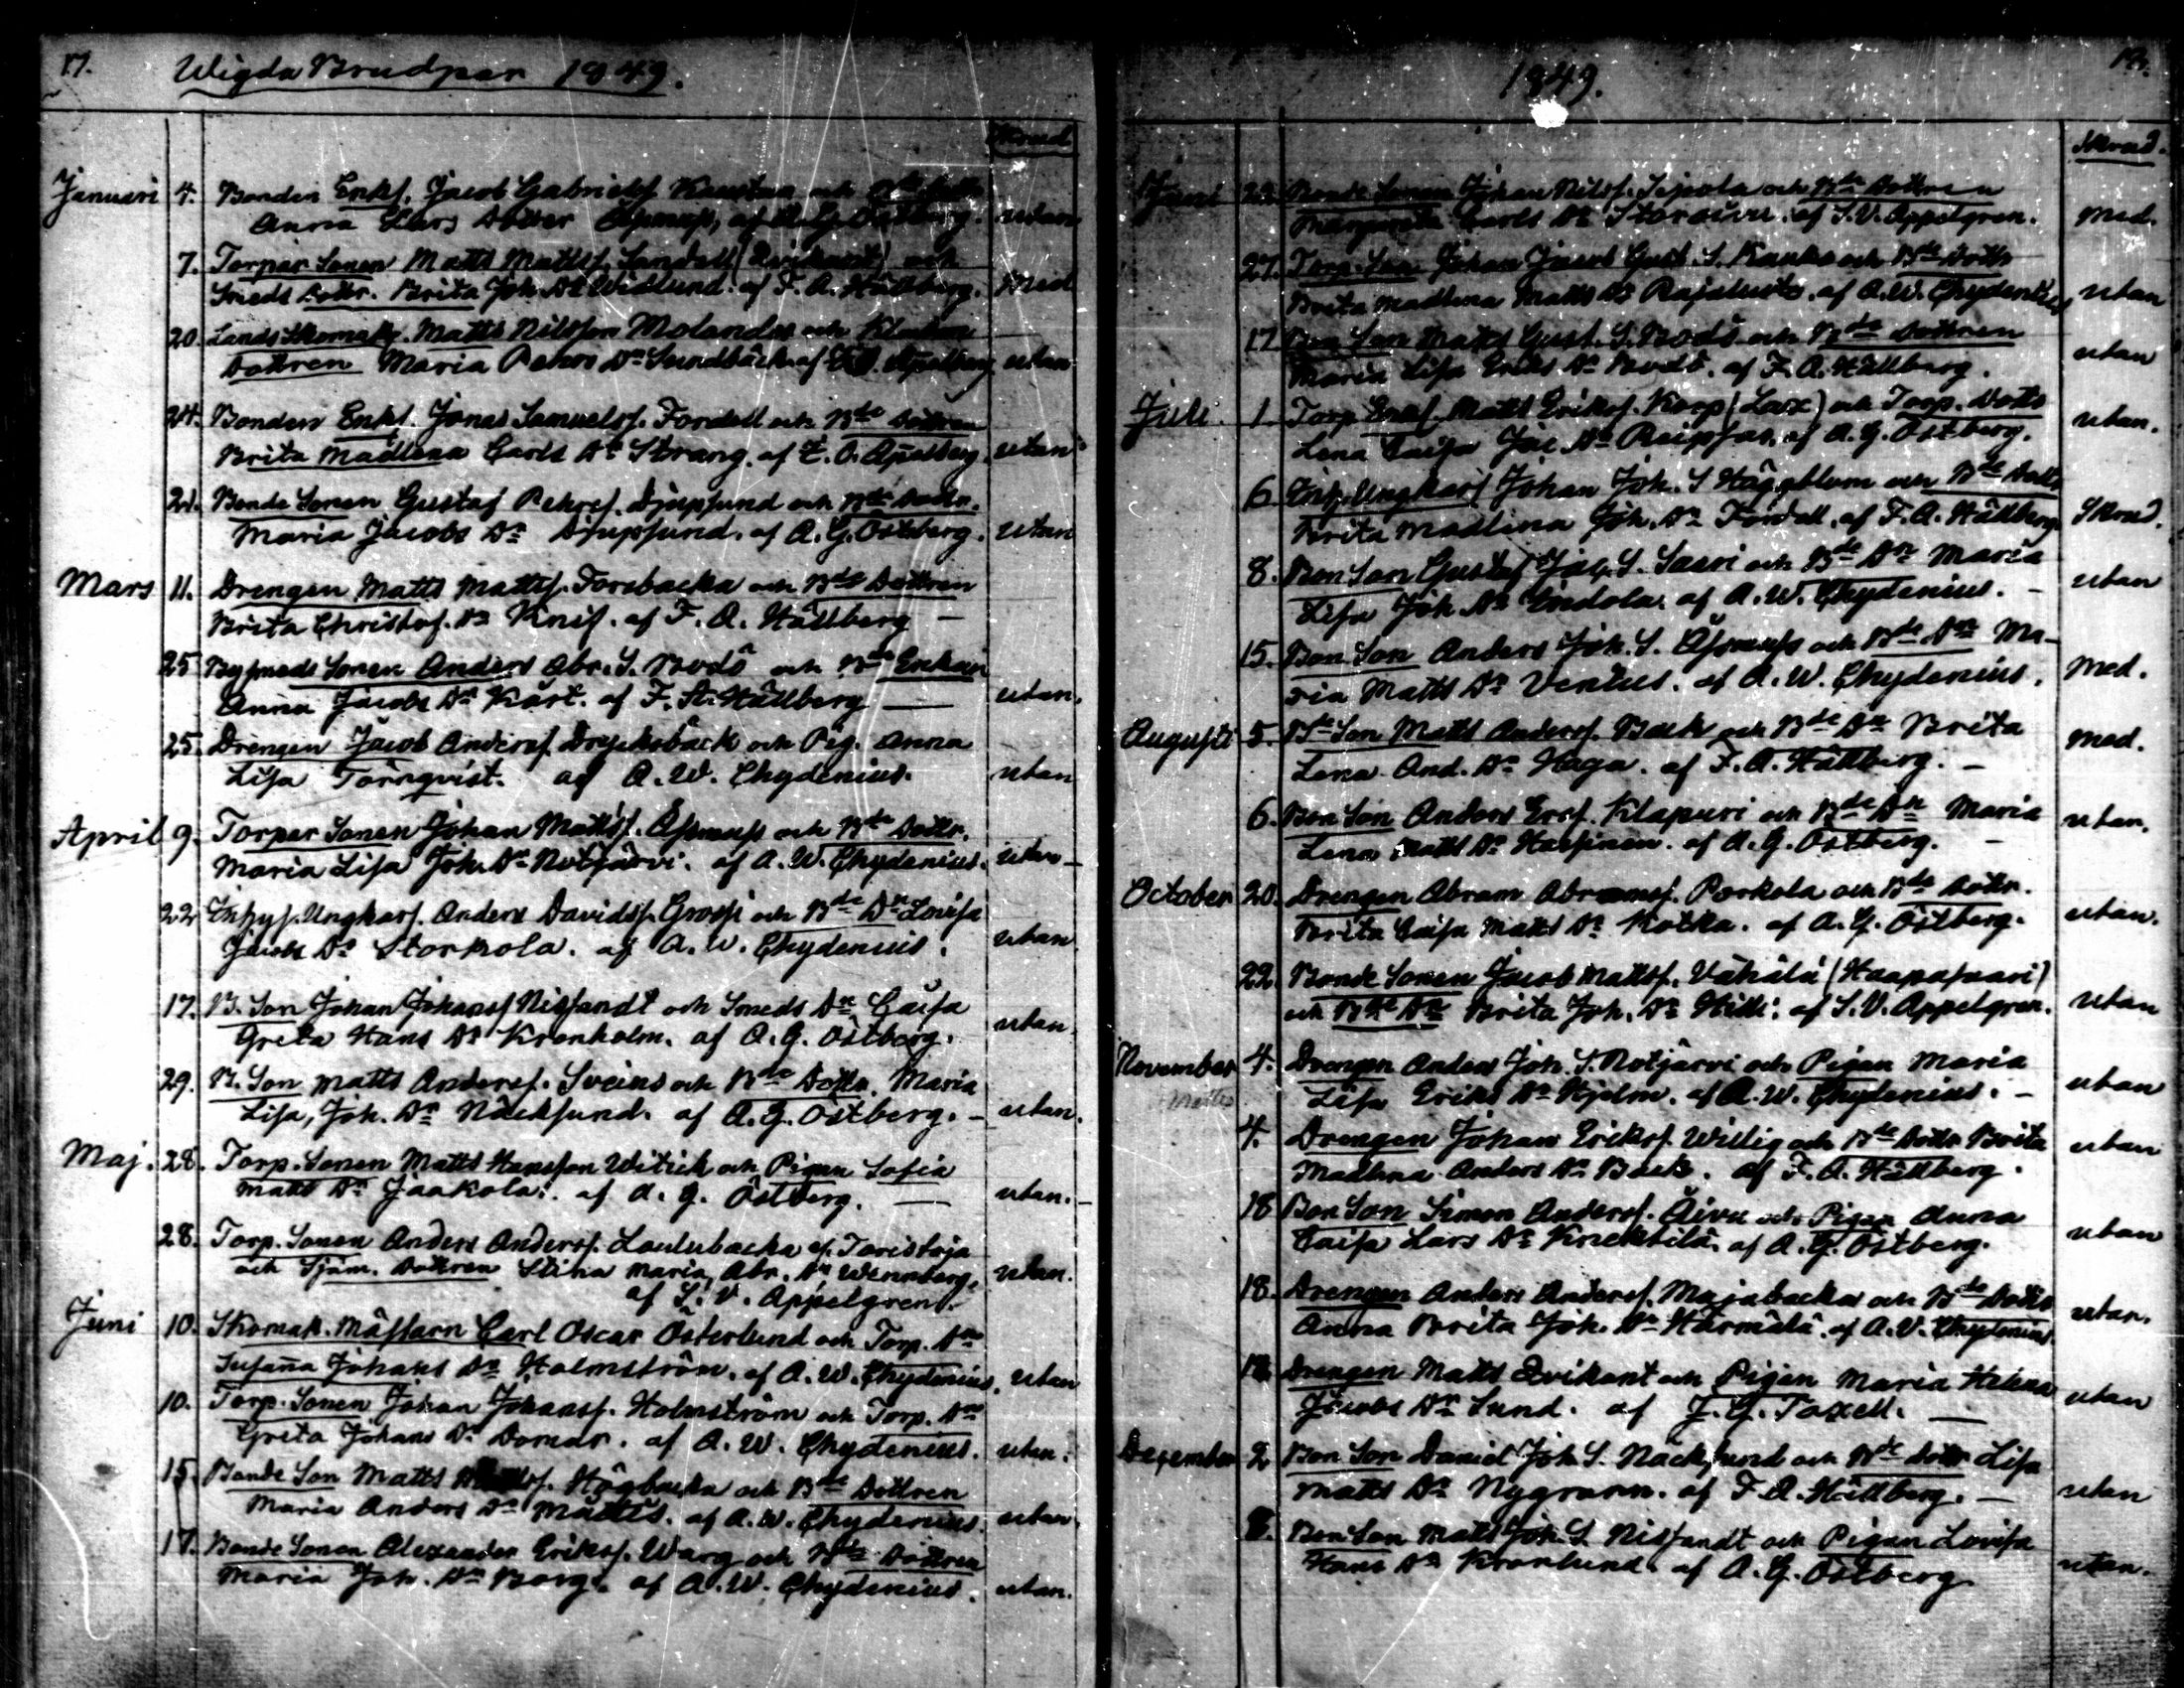 17.
Wigda Brudpar 1849.
Skrud
Januari 4. Bonden Enkl. Jacob Gabrielss och
Anna Lars Dotter af utan
7. Torpar Sonen Matts Mattss. Sandell och
Smeds Dottr. Brita Joh. Dr Widlund. af F. A. Hällberg. Med
20. Lands Skomak. Matts Nilsson Molander och
Dottren Maria Pehrs Dr Sundbäck af utan
24. Bonden Enkl. Jonas Samuelss. Fordell och Bde Dottren
Brita Madlena Carls Dr Strang. af utan
21. Bonde Sonen Gustaf Pehrss. Djupsund och Bde Dottr.
Maria Jacobs Dr Djupsund. af A. G. Östberg. utan
Mars 11. Drengen Matts Mattss. Forsbacka och Bde Dottren
Brita Christof. Dr Knif. af F. A. Hällberg –
25 Bysmeds Sonen Anders Abr. S. Bodö och Enkan
Anna Jacobs Dr Kårt. af F. A. Hällberg — utan.
25. Drengen Jacob Anderss. Drycksbäck och Pig. Anna
Lisa Törnqvist. af A. W. Chydenius. utan
April 9. Torpar Sonen Johan Mattss. Åsmuss och Bde Dottr.
Maria Lisa Joh. Dr Notjärvi. af A. W. Chydenius. utan –
22 Inhys. Ungkarl. Anders Davidss. Grossi och Bde Dr Lovisa
Jacobs Dr Storkola. af A. W. Chydenius. utan
17. B. Son Johan Johanss Nissandt och Smeds Dr Caisa
Greta Hans Dr Kronholm. af A. G. Östberg. utan
29. B. Son Matts Anderss. Sveins och Bde Dottr. Maria
Lisa, Joh. Dr Näcksund. af A. G. Östberg. – utan.
Maj. 28. Torp. Sonen Matts Hansson Witick och Pigan Sofia
Matts Dr Jaakola. af A. G. Östberg. — utan. –
28. Torp. Sonen Anders Anderss. Loulubacka af
och Dottren Stina Maria Abr. Dr Wennberg, utan.
af S. V. Appelgren.
Juni 10. Skomak. Mästarn Carl Oscar Österlund och Torp. Dr
Susanna Johans Dr Holmström. af A. W. Chydenius. utan
10. Torp. Sonen Johan Johanss. Holmström och Torp. Dr
Greta Johans Dr Domar. af A. W. Chydenius. utan.
15. Bonde Son Matts Högbacka och Bde Dottren
Maria Anders Dr Mattus. af A. W. Chydenius. utan.
17. Bonde Sonen Alexander Erikss. Warg och Bde Dottren
Maria Joh. Dr Borg. af A. W. Chydenius. utan.
1849.
Skrud.
Juni Bonde Sonen Johan Nilss. Sipola och Bde Dottren
Margareta Carls Dr af S. V. Appelgren. Med.
27. Torp. Son Johan Jacob Gust. S. och Bde Dottr
Brita Madlena Matts Dr Rajaluoto. af A. W. Chydenius utan
17. Bon Son Matts Gust. S. Bodö och Bde Dottren
Maria Lisa Eriks Dr Bodö. af F. A. Hällberg. utan
Juli. 1. Torp. Enkl. Matts Erikss. Korp (Lax) och Torp. Dottr
Lena Caisa Jac. Dr af A. G. Östberg. utan.
6 Inhys Ungkarl Johan Joh. S Häggblom och Bde Dottr
Brita Madlena Joh. Dr Fordell. af F. A. Hällberg. Skrud.
8. Bon Son Gustaf Jac. S. Saari och Bde Dr Maria
Lisa Joh. Dr Indola. af A. W. Chydenius. – utan
15. Bon Son Anders Joh. S. Åsmuss och Bde Dr Ma-
ria Matts Dr Ventus. af A. W. Chydenius. Med.
Augusti 5. Bde Son Matts Anderss. Back och Bde Dr Brita
Lena And. Dr Haga. af F. A. Hällberg. – Med.
6. Bon Son Anders Ersf. Klapuri och Bde Dr Maria
Lena Matts Dr af A. G. Östberg. – utan.
October 20. Drengen Abram Abramss. Porkola och Bde Dottr.
Brita Caisa Matts Dr Kotka. af A. G. Östberg. utan.
22. Bonde Sonen Jacob Mattss. Vähälä (Haapasaari)
och Bde Dr Brita Joh. Dr Hilli. af S. V. Appelgren. utan
November 4. Drengen Anders Joh. S. Notjärvi och Pigan Maria
Lisa Eriks Dr Hjelm. af A. W. Chydenius. – utan
4. Drengen Johan Erikss. Willig och Bde Dottr Brita
Madlena Anders Dr Back. af F. A. Hällberg. utan
18 Bon Son Simon Anderss. Äivu och Pigan Anna
Caisa Lars Dr Knektilä. af A. G. Östberg. utan
18. Drengen Anders Anderss. Majabacka och Bde Dottr
Anna Brita Joh. Dr Härmälä. af A. W. Chydenius utan.
18. Drengen Matts Qvikant och Pigan Maria Helena
Jacobs Dr Sund. af J. G. Taxell. — utan
December 2 Bon Son Daniel Joh. S. Näcksund och Bde Dottr Lisa
Matts Dr Nygrann. af F. A. Hällberg. – utan
Bon Son Matts Joh. S. Nissandt och Pigan Lovisa
Hans Dr Kronlund. af A. G. Östberg utan.